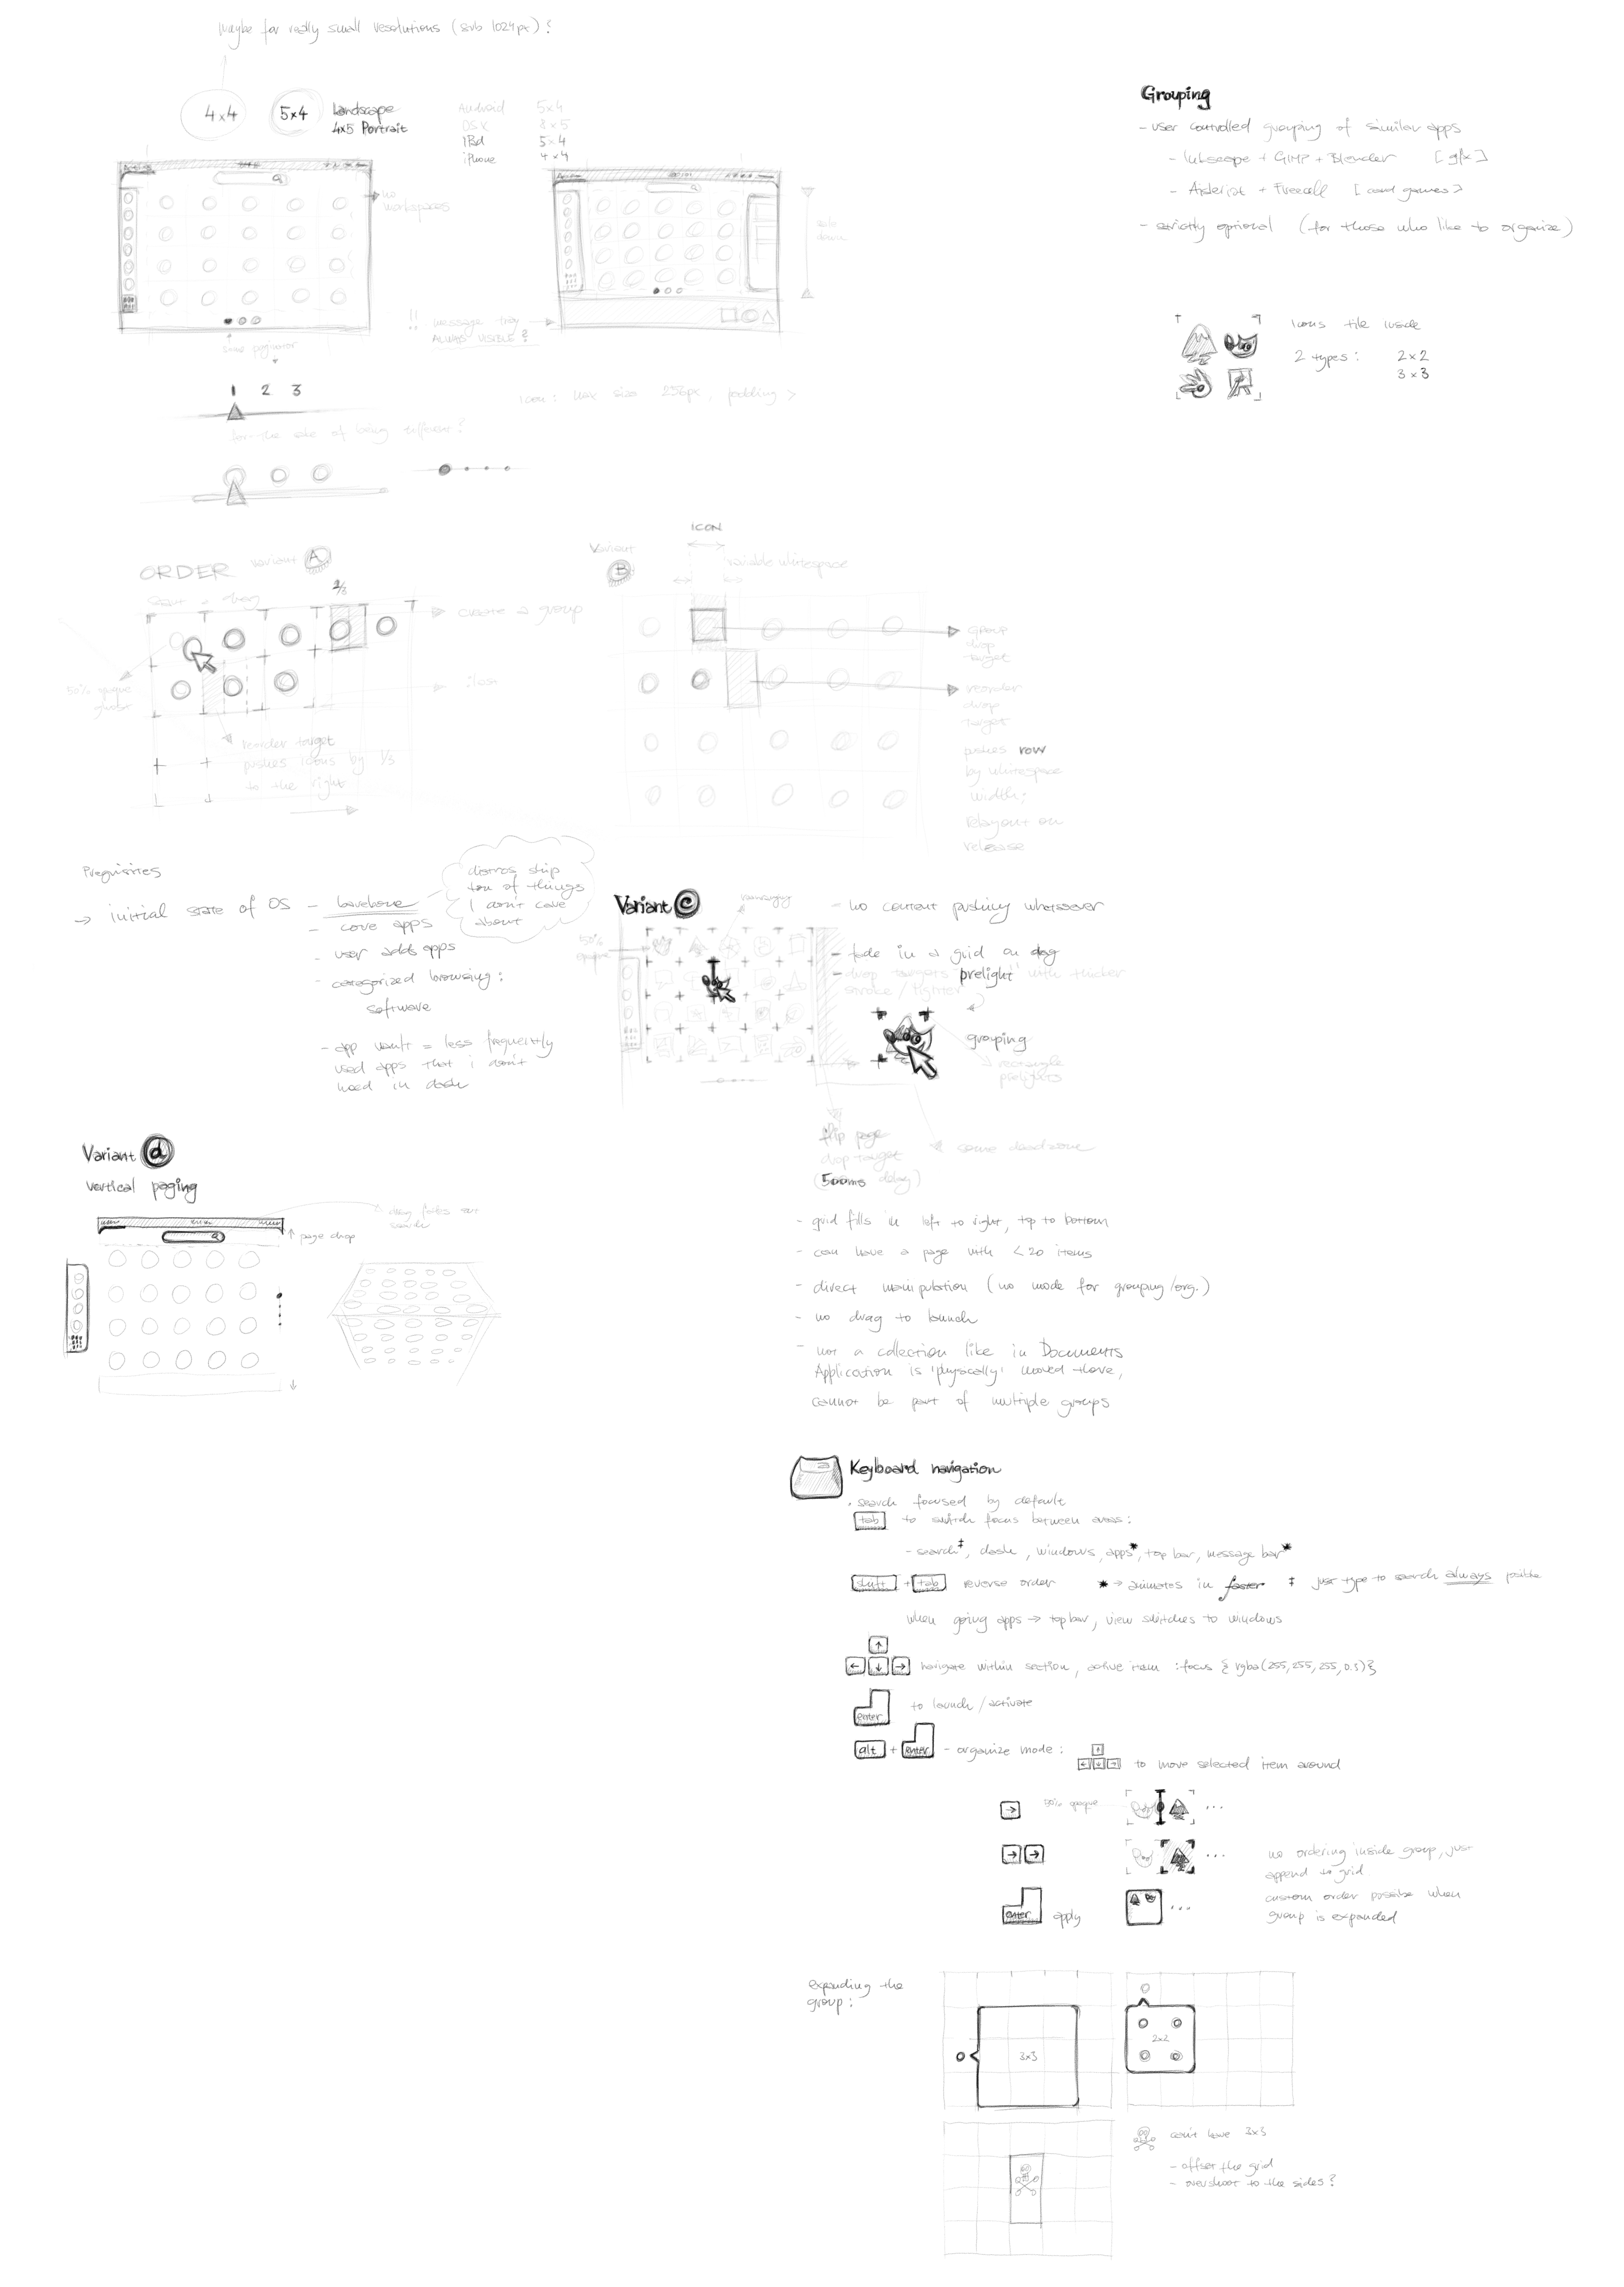 Maybe for really small resolutions (sub 1024px)?
4x4
5x4
Landscape
4x5 Portrait
Android 5x4
OSX 8x5
iPad 5x4
iPhone 4x4
no workspaces
message tray
ALWAYS VISIBLE?
!!
1 2 3
for the sake of being different?
icon: max size 256px, padding >
Grouping
- user controlled grouping of similar apps
- Inkscape + GIMP + Blender [gfx]
- Aisleriot + Freecell [card games]
- strictly optional (for those who like to organize)
Icons tile inside
2 types: 2x2
3x3
ORDER variant A
1/3
create a group
50% opaque
reorder target
pushes icons by 1/3
to the right
Variant
B
ICON
variable whitespace
GROUP
drop
target
reorder
drop
target
pushes row
by whitespace
width;
relayout on
release
→ initial state of OS - barebone
- core apps
- user adds apps
- categorized browsing:
software
- app vault = less frequently
used apps that i don't
need in dash
distros ship
ton of things
I don't care
about
Variant C
50%
opaque
- no content pushing whatsoever
- fade in a grid on drag
- drop targets "prelight" with thicker
stroke / lighter
grouping
rectangle
prelights
flip page
drop target
(500ms delay)
some deadzone
Variant d
vertical paging
page drop
- grid fills in left to right, top to bottom
- can have a page with <20 items
- direct manipulation (no mode for grouping/org.)
- no drag to launch
- not a collection like in Documents
Application is 'physically' moved there,
cannot be part of multiple groups
Keyboard navigation
. search focused by default
tab to switch focus between areas:
- search‡, dash, windows, apps*, top bar, message bar*
shift + tab reverse order * → animates in faster ‡ just type to search always possible
when going apps → top bar, view switches to windows
↑
← ↓ → navigate within section, active item :focus { rgba(255,255,255,0.5)}
enter to launch / activate
alt + enter - organize mode:
↑
← ↓ → to move selected item around
→ 50% opaque ...
→ → ...
no ordering inside group, just
append to grid
enter apply ...
custom order possible when
group is expanded
expanding the
group:
3x3
2x2
can't have 3x3
- offset the grid
- overshoot to the sides?